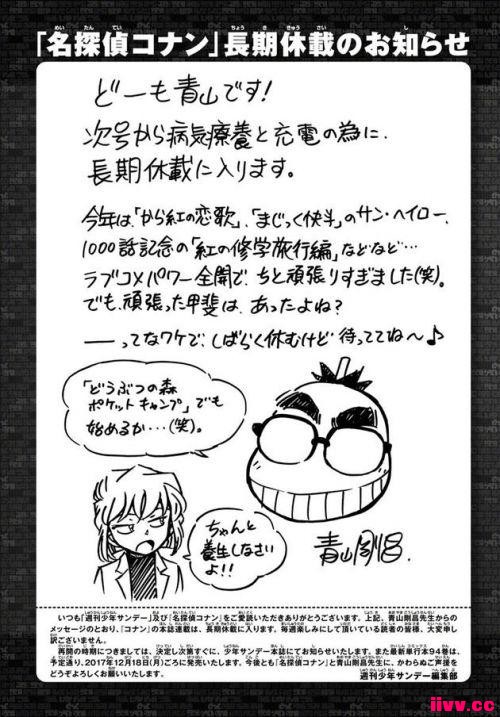 「名探偵コナン」長期休載のお知らせ
どーも青山です!
次号から病気療養と充電の為に、
長期休載に入ります。
今年は、「から紅の恋歌」、「まじっく快斗」のサン・ヘイロー、
1000話記念の「紅の修学旅行編」などなど…
ラブコメパワー全開で、ちと頑張りすぎました(笑)。
でも、頑張った甲斐は、あったよね?
――ってなワケで、しばらく休むけど待っててね〜♪
「どうぶつの森
ポケットキャンプ」でも
始めるか…(笑)。
ちゃんと
養生しなさい
よ!!
青山剛昌
いつも「週刊少年サンデー」及び「名探偵コナン」をご愛読いただきありがとうございます。上記、青山剛昌先生からの
メッセージのとおり、『コナン』の本誌連載は、長期休載に入ります。毎週楽しみにして頂いている読者の皆様、大変申し
訳ございません。
再開の時期につきましては、決定し次第すぐに、少年サンデー本誌にてお知らせいたします。また最新単行本94巻は、
予定通り、2017年12月18日(月)ごろに発売いたします。今後とも「名探偵コナン」と青山剛昌先生に、かわらぬご声援を
どうぞよろしくお願いいたします。
週刊少年サンデー編集部
iivv.cc